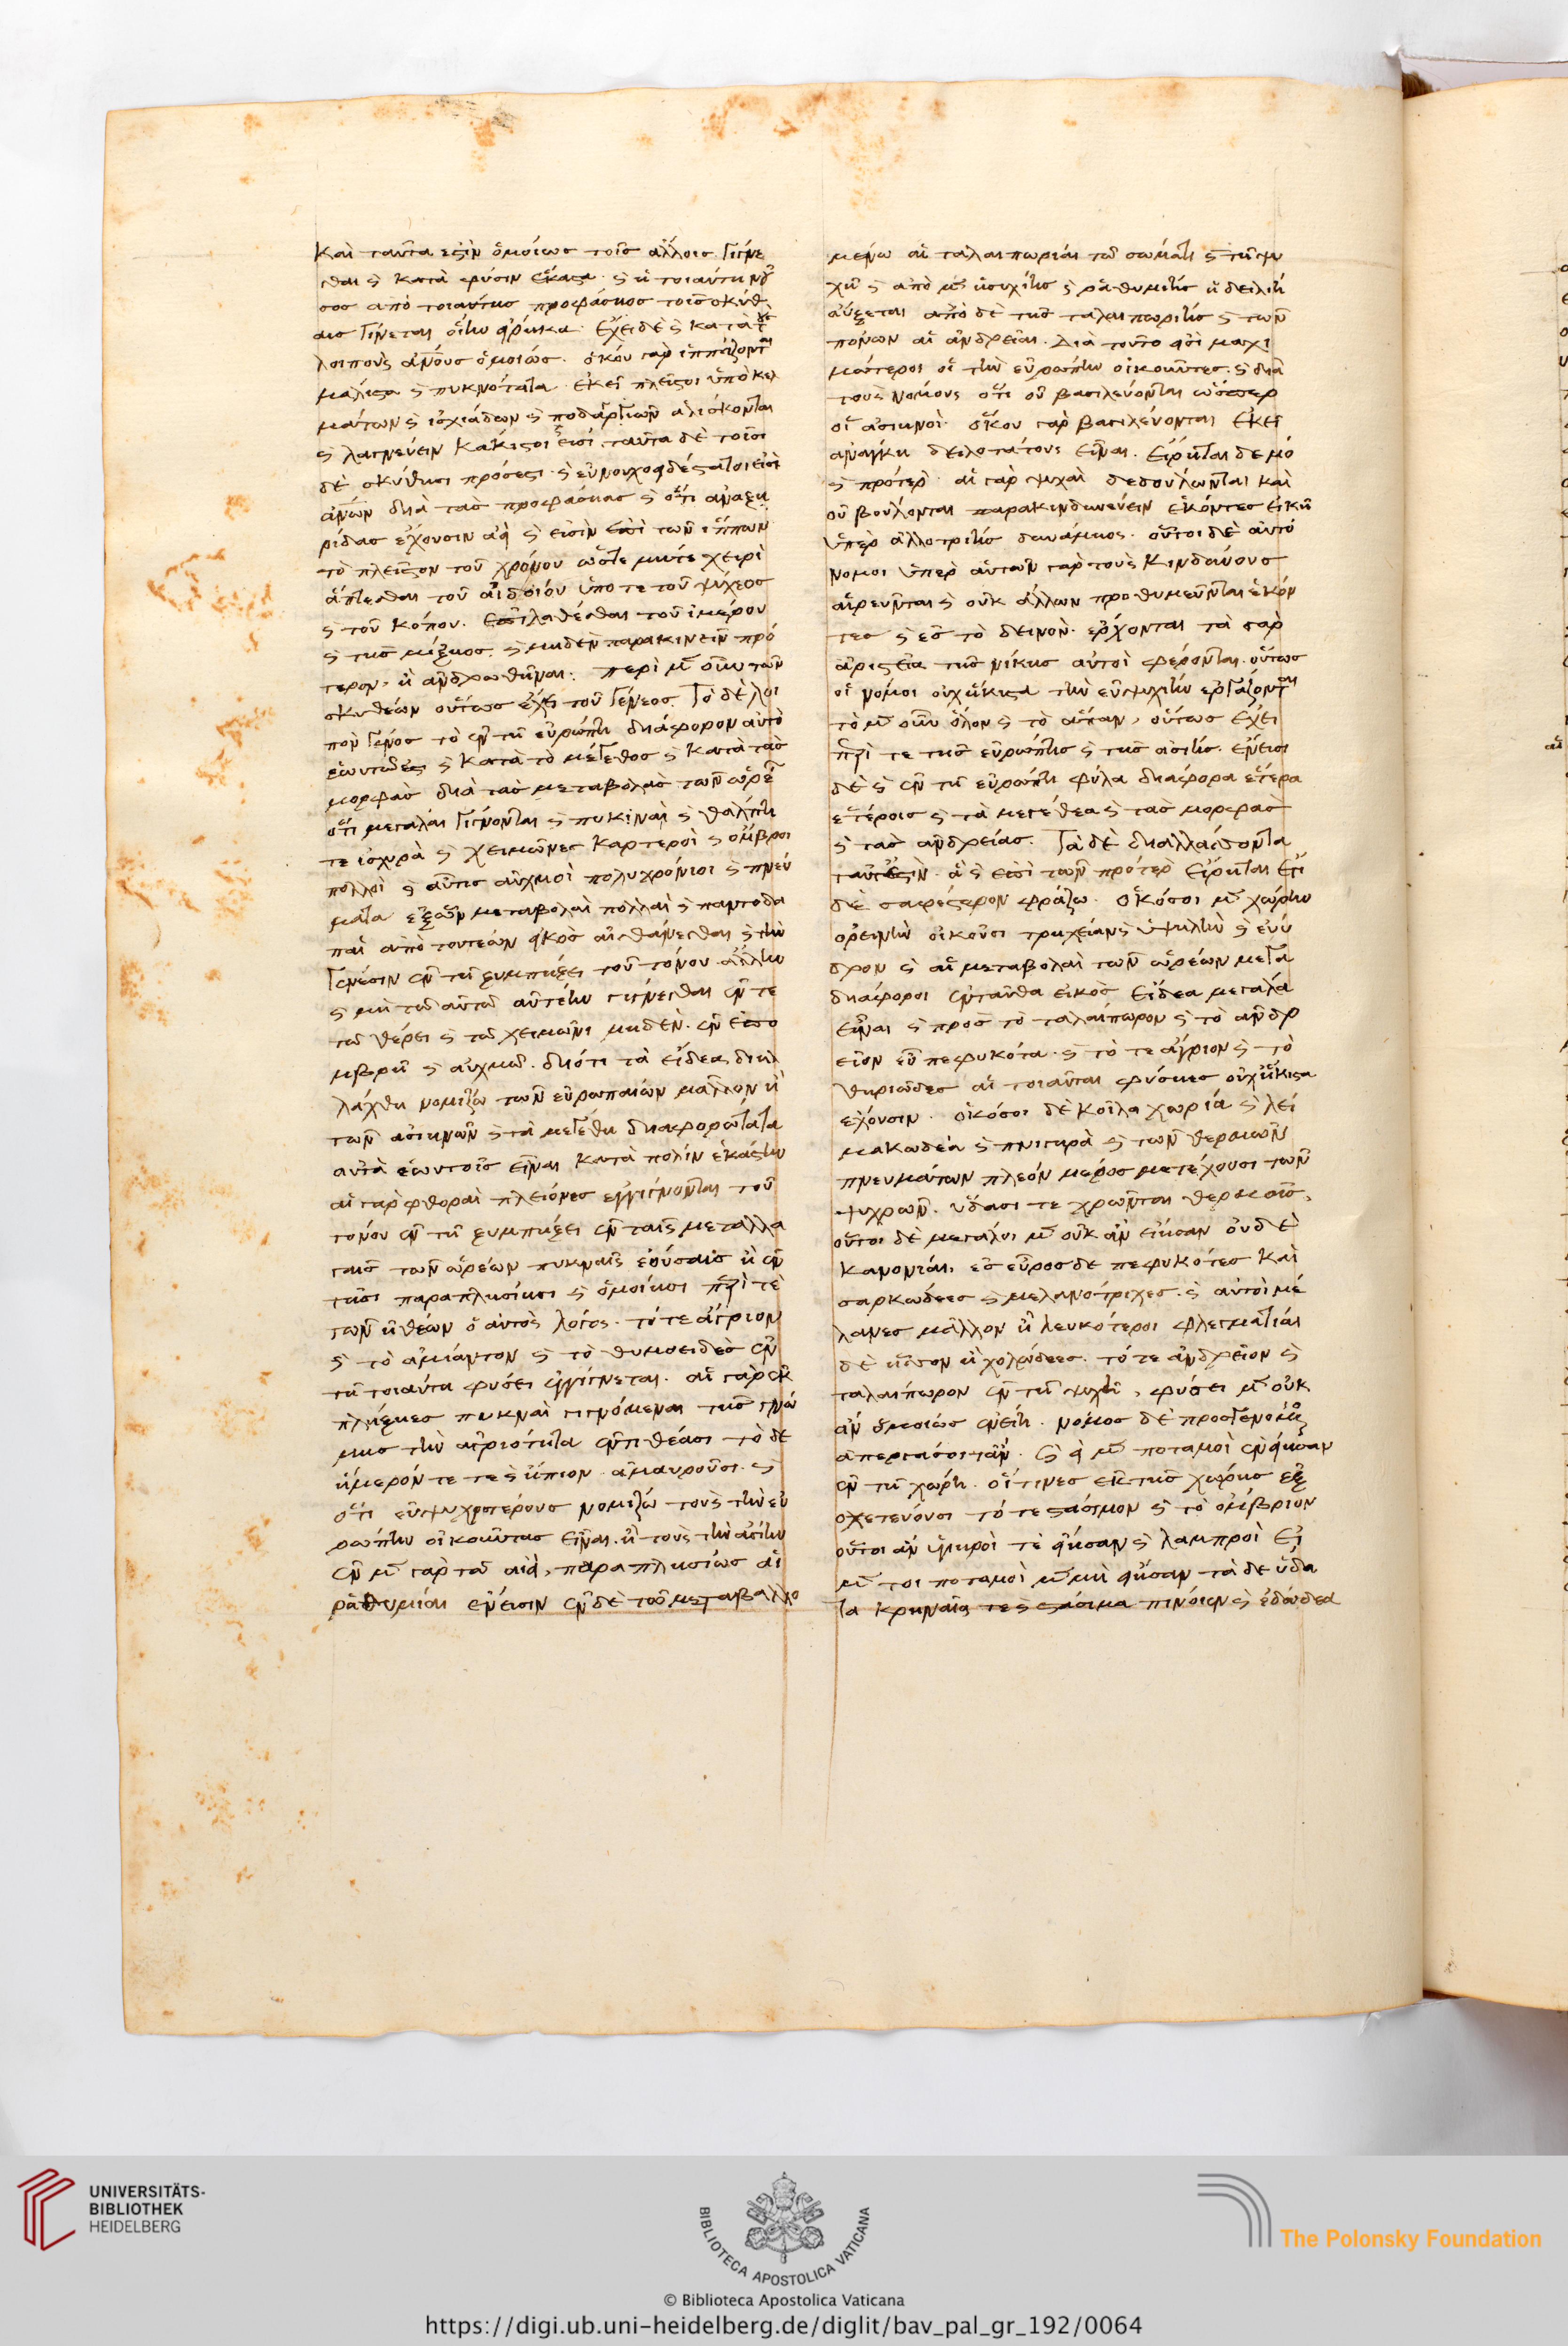 Καὶ ταῦτα ἐστὶν ὁμοίως τοῖς ἄλλοις. Γίγνε
σθαι ϛ κατὰ φύσιν ἕκαστα. ϛ ἡ τοιαύτη νοῦ
σος ἀπὸ τοιαύτης προφάσηος τοῖς σκύθ
αις Γίνεται οἵην εἴρηκα. Ἔχει δὲ ϛ κατὰ τοὺς
λοιποὺς ἀν̅ους ὁμοίως. ὁκόυ γὰρ ἱππάζονται
μάλιστα ϛ πυκνότατα ἐκεῖ πλεῖστοι ὑπὸ κεδ
μάτων ϛ ἰσχιάδων ϛ ποδαργιῶν ἁλίσκονται
ϛ λαγνεύειν κάκιστοι εἰσί. ταῦτα δὲ τοῖσι
δὲ σκύθησι πρόσεστι. ϛ εὐνουχοειδέστατοι εἰσὶ
ἀν̅ων διὰ τὰς προφάσηας ϛ ὅτι ἀναξυ
ρίδας ἔχουσιν ἀεὶ ϛ εἰσὶν ἐπὶ τῶν ἵππων
τὸ πλεῖστον τοῦ χρόνου ὥστε μήτε χειρὶ
ἅπτεσθαι τοῦ αἰδοίου ὑπό τε τοῦ ψύχεος
ϛ τοῦ κόπου. ἐπιλαθέσθαι τοῦ ἱμέρου
ϛ τῆς μίξηος. ϛ μηδὲν παρακινεῖν πρό
τερον, ἢ ἀνδρωθῆναι: περὶ μ̅ οὖν τῶν
σκυθέων οὕτως ἔχει τοῦ Γένεος. Τὸ δὲ λοι
πὸν Γένος τὸ ἐν τῆ εὐρώπη διάφορον αὐτὸ
ἑωυτῶ ἐστι ϛ κατὰ τὸ μέγεθος ϛ κατὰ τὰς
μορφὰς διὰ τὰς μεταβολὰς τῶν ὡρέω̅
ὅτι μεγάλαι Γίγνονται ϛ πυκιναὶ ϛ θάλπη
τε ἰσχυρὰ ϛ χειμῶνες καρτεροὶ ϛ ὄμβροι
πολλοὶ ϛ αὖτις αὐχμοὶ πολυχρόνιοι ϛ πνεύ
ματα ἐξ ὧν μεταβολαὶ πολλαὶ ϛ παντοδα
παὶ ἀπὸ τουτέων εἰκὸς αἰσθάνεσθαι ϛ τὴν
Γένεσιν ἐν τῆ ξυμπήξει τοῦ τόνου. ἄλλην
ϛ μὴ τῶ αὐτῶ αὐτέην γίγνεσθαι ἔν τε
τῶ θέρει ϛ τῶ χειμῶνι μηδὲν. ἐν ἐπο
μβρίῃ ϛ αὐχμῶ. διότι τὰ εἴδεα διηλ
λάχθη νομίζω τῶν εὐρωπαίων μᾶλλον ἢ
τῶν ἀσιηνῶν ϛ τὰ μεγέθη διαφορώτατα
αὐτὰ ἑωυτοῖς εἶναι κατὰ πόλιν ἑκάστην
αἱ γὰρ φθοραὶ πλείονες ἐγγίγνονται τοῦ
τόνου ἐν τῆ ξυμπήξει ἐν ταῖς μεταλλα
γαῖς τῶν ὡρέων πυκναῖς ἐούσαις ἢ ἐν
τῆσι παραπλησίησι ϛ ὁμοίησι περί τε
τῶν ἠθέων ὁ αὐτὸς λόγος. τό τε ἄγριον
ϛ τὸ ἀμίαντον ϛ τὸ θυμοειδὲς ἐν
τῆ τοιαύτη φύσει ἐγγίγνεται. αἱ γὰρ ἐκ
πλήξηες πυκναὶ γιγνόμεναι τῆς γνώ
μης τὴν ἀγριότητα ἐντιθέασι τὸ δὲ
ἥμερόν τε τε ϛ ἤπιον ἀμαυροῦσι. ϛ
ὅτι εὐψυχοτέρους νομίζω τοὺς τὴν εὐ
ρώπην οἰκοῦντας εἶναι ἢ τοὺς τὴν ἀσίην
ἐν μ̅ γὰρ τῶ αἰεὶ, παραπλησίως αἱ
ῥᾳθυμίαι ἔνεισιν ἐν δὲ τοῦ μεταβαλλο
μένω αἱ ταλαιπωρίαι τῶ σώματι ϛ τῆ ψυ
χῆ ϛ ἀπὸ μ̅ ἡσυχίης ϛ ῥαθυμίης ἡ δειλίη
αὔξεται ἀπὸ δὲ τῆς ταλαιπωρίης ϛ τῶν
πόνων αἱ ἀνδρεῖαι. Διὰ τοῦτο εἰσὶ μαχι
μώτεροι οἱ τὴν εὐρώπην οἰκοῦντες. ϛ διὰ
τοὺς νόμους ὅτι οὐ βασιλεύονται ὥσπερ
οἱ ἀσιηνοὶ. ὅκου γὰρ βασιλεύονται ἐκεῖ
ἀνάγκη δειλοτάτους εἶναι. Εἴρηται δέ μο
ϛ πρότερ̅. αἱ γὰρ ψυχαὶ δεδούλωνται καὶ
οὐ βούλονται παρακινδυνεύειν ἑκόντες εἰκῆ
ὑπὲρ ἀλλοτρίης δυνάμηος. οὗτοι δὲ αὐτό
νομοι ὑπὲρ αὑτῶν γὰρ τοὺς κινδύνους
αἱρεῦνται ϛ οὐκ ἄλλων προθυμεῦνται ἑκόν
τες ϛ ἐς τὸ δεινὸν. ἔρχονται τὰ γὰρ
ἀριστεῖα τῆς νίκης αὐτοὶ φέρονται. οὕτως
οἱ νόμοι οὐχ ἥκιστα τὴν εὐψυχίην ἐργάζονται
τὸ μ̅ οὖν ὅλον ϛ τὸ ἅπαν, οὕτως ἔχει
περί τε τῆς εὐρώπης ϛ τῆς ἀσίης. ἔνεισι
δὲ ϛ ἐν τῆ εὐρώπη φύλα διάφορα ἕτερα
ἑτέροις ϛ τὰ μεγέθεα ϛ τὰς μορφὰς
ϛ τὰς ἀνδρείας. Τὰ δὲ διαλλάσσοντα
ταῦτ ἐστὶν. ἃ ϛ ἐπὶ τῶν πρότερ̅ εἴρηται ἔτι
δὲ σαφέστερον φράζω. Ὁκόσοι μ̅ χώρην
ὀρεινὴν οἰκοῦσι τρηχείαν ϛ ὑψηλὴν ϛ ἔνυ
δρον ϛ αἱ μεταβολαὶ τῶν ὡρέων μετα
διάφοροι ἐνταῦθα εἰκὸς εἴδεα μεγάλα
εἶναι ϛ πρὸς τὸ ταλαίπωρον ϛ τὸ ἀνδρ
εῖον εὖ πεφυκότα. ϛ τό τε ἄγριον ϛ τὸ
θηριῶδες αἱ τοιαῦται φύσηες οὐχ ἥκιστα
ἔχουσιν. ὁκόσοι δὲ κοῖλα χωρία ϛ λει
μακώδεα ϛ πνιγηρὰ ϛ τῶν θερμῶν
πνευμάτων πλεόν μέρος μετέχουσι τῶν
ψυχρῶν. ὕδασί τε χρῶνται θερμοῖς,
οὗτοι δὲ μεγάλοι μ̅ οὐκ ἂν εἴησαν οὐδὲ
κανονίαι, ἐς εὖρος δὲ πεφυκότες καὶ
σαρκώδεες ϛ μελανότριχες. ϛ αὐτοὶ μέ
λανες μᾶλλον ἢ λευκότεροι φλεγματίαι
δὲ ἧσσον ἢ χολώδεες. τό τε ἀνδρεῖον ϛ
ταλαίπωρον ἐν τῆ ψυχῆ, φύσει μ̅ οὐκ
ἂν ὁμοίως ἐνείη. νόμος δὲ προσγενόμενος
ἀπεργάσοιτ ἂν. ϛ εἰ μ̅ ποταμοὶ ἐνείησαν
ἐν τῆ χώρη. οἵτινες ἐκ τῆς χώρης ἐξ
οχετεύουσι τό τε στάσιμον ϛ τὸ ὄμβριον
οὗτοι ἂν ὑγιηροί τε εἴησαν ϛ λαμπροὶ Εἰ
μ̅ τοι ποταμοὶ μ̅ μὴ εἴησαν τὰ δὲ ὕδα
τα κρηναῖα τε ϛ στάσιμα πίνοιεν ϛ ἑλώδεα
UNIVERSITÄTS-
BIBLIOTHEK
HEIDELBERG
BIBLIOTECA APOSTOLICA VATICANA
The Polonsky Foundation
© Biblioteca Apostolica Vaticana
https://digi.ub.uni-heidelberg.de/diglit/bav_pal_gr_192/0064